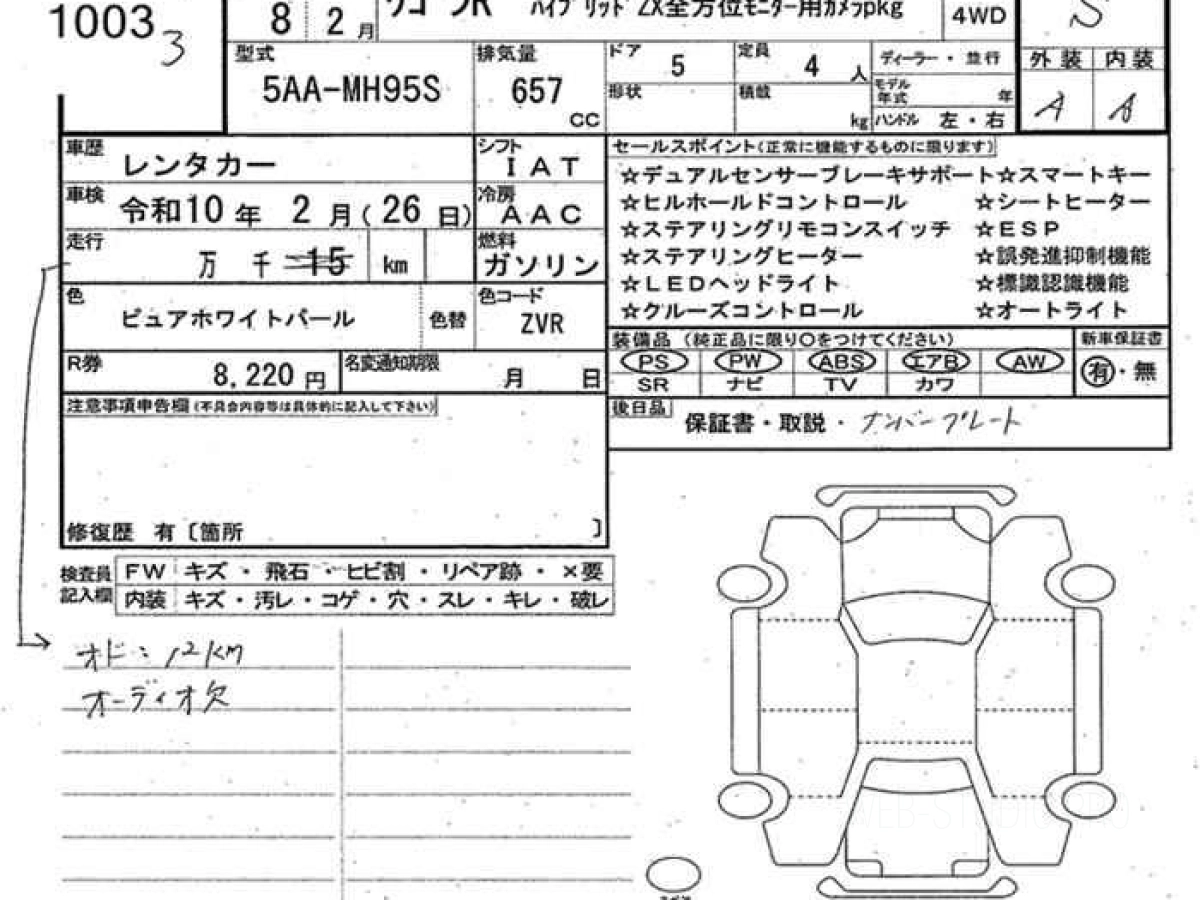 1003
3
8 2月
ﾊｲﾌﾞﾘｯﾄﾞZX全方位モニター用カメラpkg
4WD
S
型式
5AA-MH95S
排気量
657
CC
ドア
5
定員
4 人
ディーラー・並行
形状
積載
kg
モデル年式
年
ハンドル 左・右
外装 内装
A A
車歴
レンタカー
シフト
IAT
車検
令和10年 2月(26日)
冷房
AAC
走行
万 千 15 km
燃料
ガソリン
色
ピュアホワイトパール
色替
色コード
ZVR
R券
8,220円
名変通知期限
月 日
セールスポイント(正常に機能するものに限ります)
☆デュアルセンサーブレーキサポート☆スマートキー
☆ヒルホールドコントロール ☆シートヒーター
☆ステアリングリモコンスイッチ ☆ESP
☆ステアリングヒーター ☆誤発進抑制機能
☆LEDヘッドライト ☆標識認識機能
☆クルーズコントロール ☆オートライト
装備品(純正品に限り〇をつけてください)
新車保証書
PS PW ABS エアB AW
有・無
SR ナビ TV カワ
後日品
保証書・取説・ナンバープレート
注意事項申告欄(不具合内容等は具体的に記入して下さい)
修復歴 有〔箇所 〕
検査員記入欄
FW キズ・飛石・ヒビ割・リペア跡・×要
内装 キズ・汚レ・コゲ・穴・スレ・キレ・破レ
オド:12km
オーディオ欠